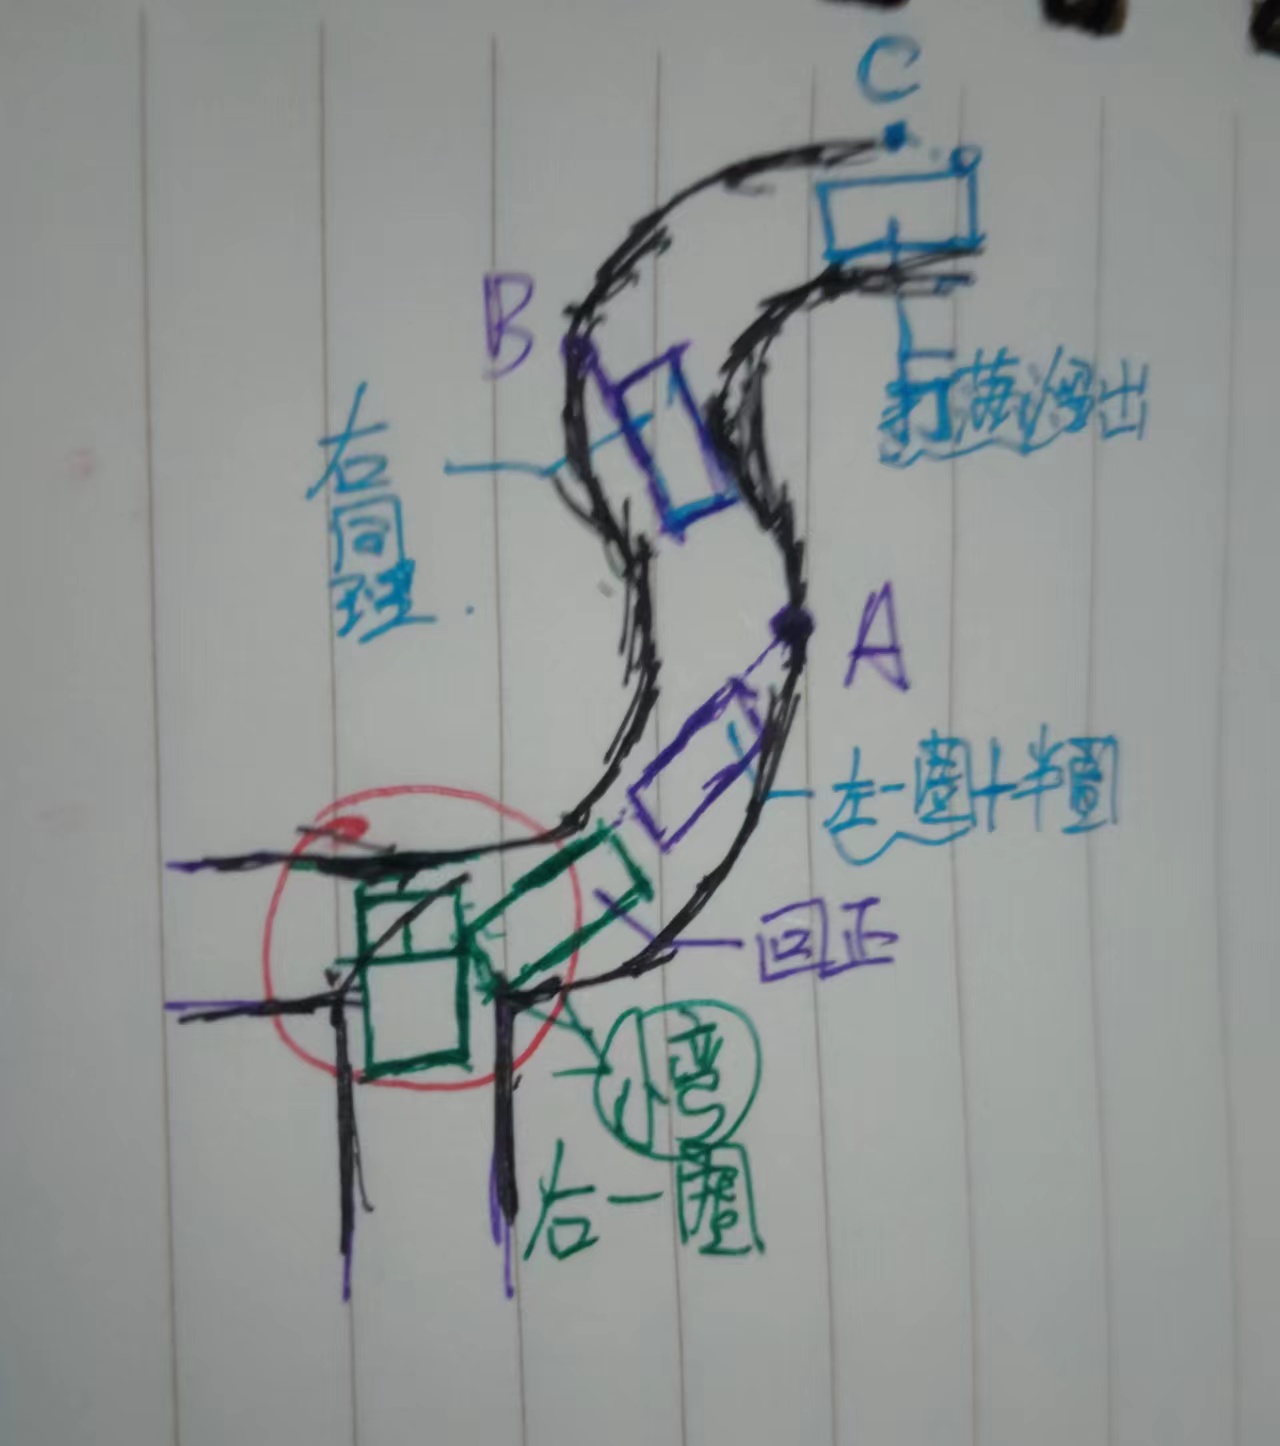 C
B
打满溜出
右
同
理.
A
左一圈+半圈
回正
小弯
右一圈